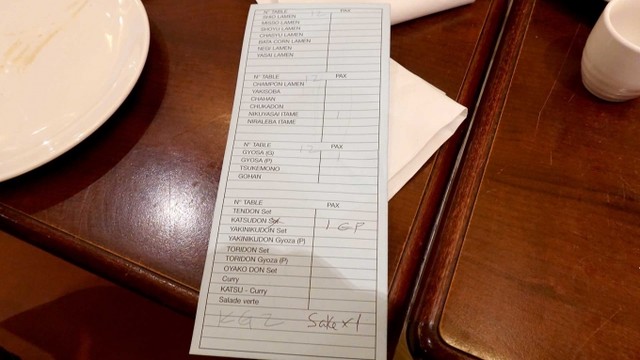 N° TABLE 12 PAX
SHIO LAMEN
MISSO LAMEN
SHOYU LAMEN
CHASYU LAMEN
BATA CORN LAMEN
NEGI LAMEN
YASAI LAMEN
N° TABLE 12 PAX
CHAMPON LAMEN
YAKISOBA
CHAHAN
CHUKADON
NIKUYASAI ITAME 1
NIRALEBA ITAME
N° TABLE 12 PAX
GYOSA (G) 1
GYOSA (P)
TSUKEMONO
GOHAN
N° TABLE PAX
TENDON Set
KATSUDON Set 1 GP
YAKINIKUDON Set
YAKINIKUDON Gyoza (P)
TORIDON Set
TORIDON Gyoza (P)
OYAKO DON Set
Curry
KATSU - Curry
Salade verte
Sake x 1